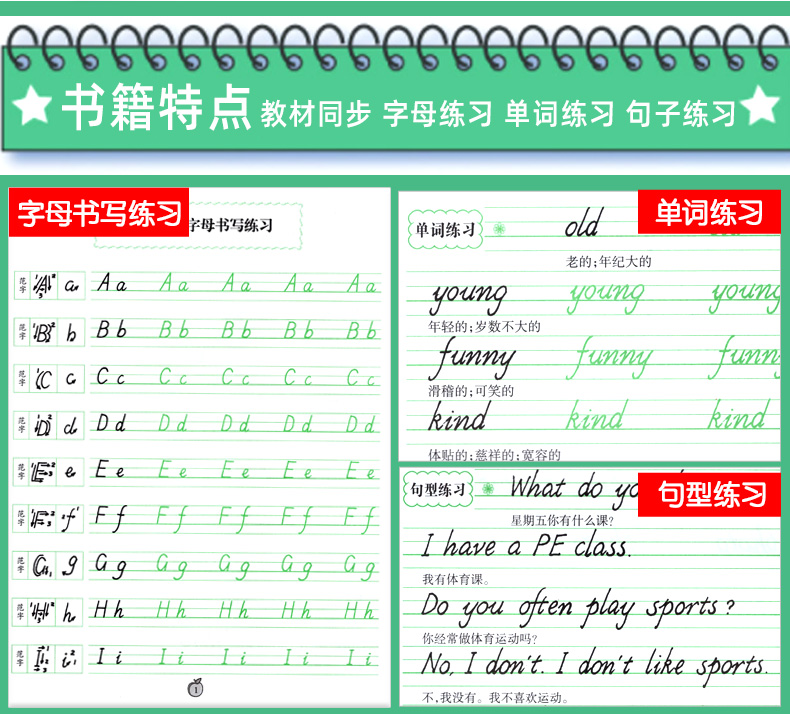 书籍特点 教材同步 字母练习 单词练习 句子练习
字母书写练习
字母书写练习
范字 A a Aa Aa Aa Aa Aa
范字 B b Bb Bb Bb Bb Bb
范字 C c Cc Cc Cc Cc Cc
范字 D d Dd Dd Dd Dd Dd
范字 E e Ee Ee Ee Ee Ee
范字 F f Ff Ff Ff Ff Ff
范字 G g Gg Gg Gg Gg Gg
范字 H h Hh Hh Hh Hh Hh
范字 I i Ii Ii Ii Ii Ii
1
单词练习
单词练习 old
老的;年纪大的
young young young
年轻的;岁数不大的
funny funny funny
滑稽的;可笑的
kind kind kind
体贴的;慈祥的;宽容的
句型练习
句型练习 What do
星期五你有什么课?
I have a PE class.
我有体育课。
Do you often play sports?
你经常做体育运动吗?
No, I don't. I don't like sports.
不,我没有。我不喜欢运动。